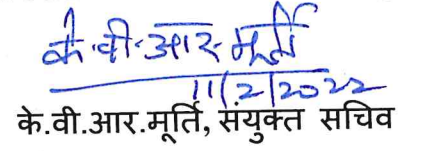 के.वी.आर.मूर्ति
11/2/2022
के.वी.आर.मूर्ति, संयुक्त सचिव